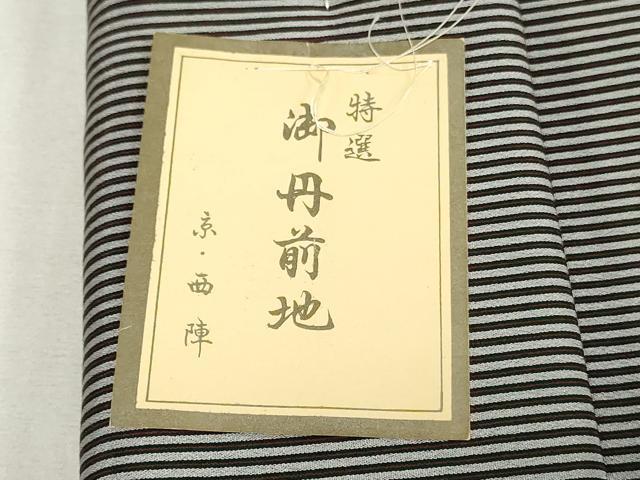 特選
御丹前地
京・西陣